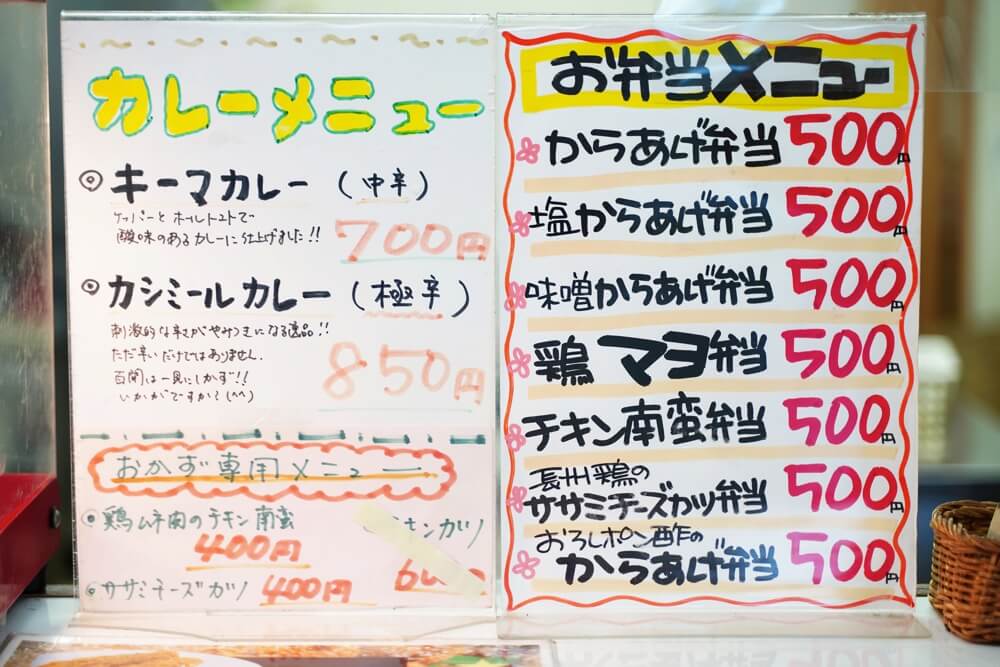 カレーメニュー
◎ キーマカレー (中辛)
ケッパーと ホールトマトで
酸味のあるカレーに仕上げました!!
700円
◎ カシミールカレー (極辛)
刺激的な辛さがやみつきになる逸品!!
ただ辛いだけではありません.
百聞は一見にしかず!!
いかがですか?(^^)
850円
おかず専用メニュー
◎ 鶏ムネ肉のチキン南蛮
400円
チキンカツ
◎ ササミチーズカツ 400円
お弁当メニュー
からあげ弁当 500円
塩からあげ弁当 500円
味噌からあげ弁当 500円
鶏マヨ弁当 500円
チキン南蛮弁当 500円
長州鶏の
ササミチーズカツ弁当 500円
おろしポン酢の
からあげ弁当 500円